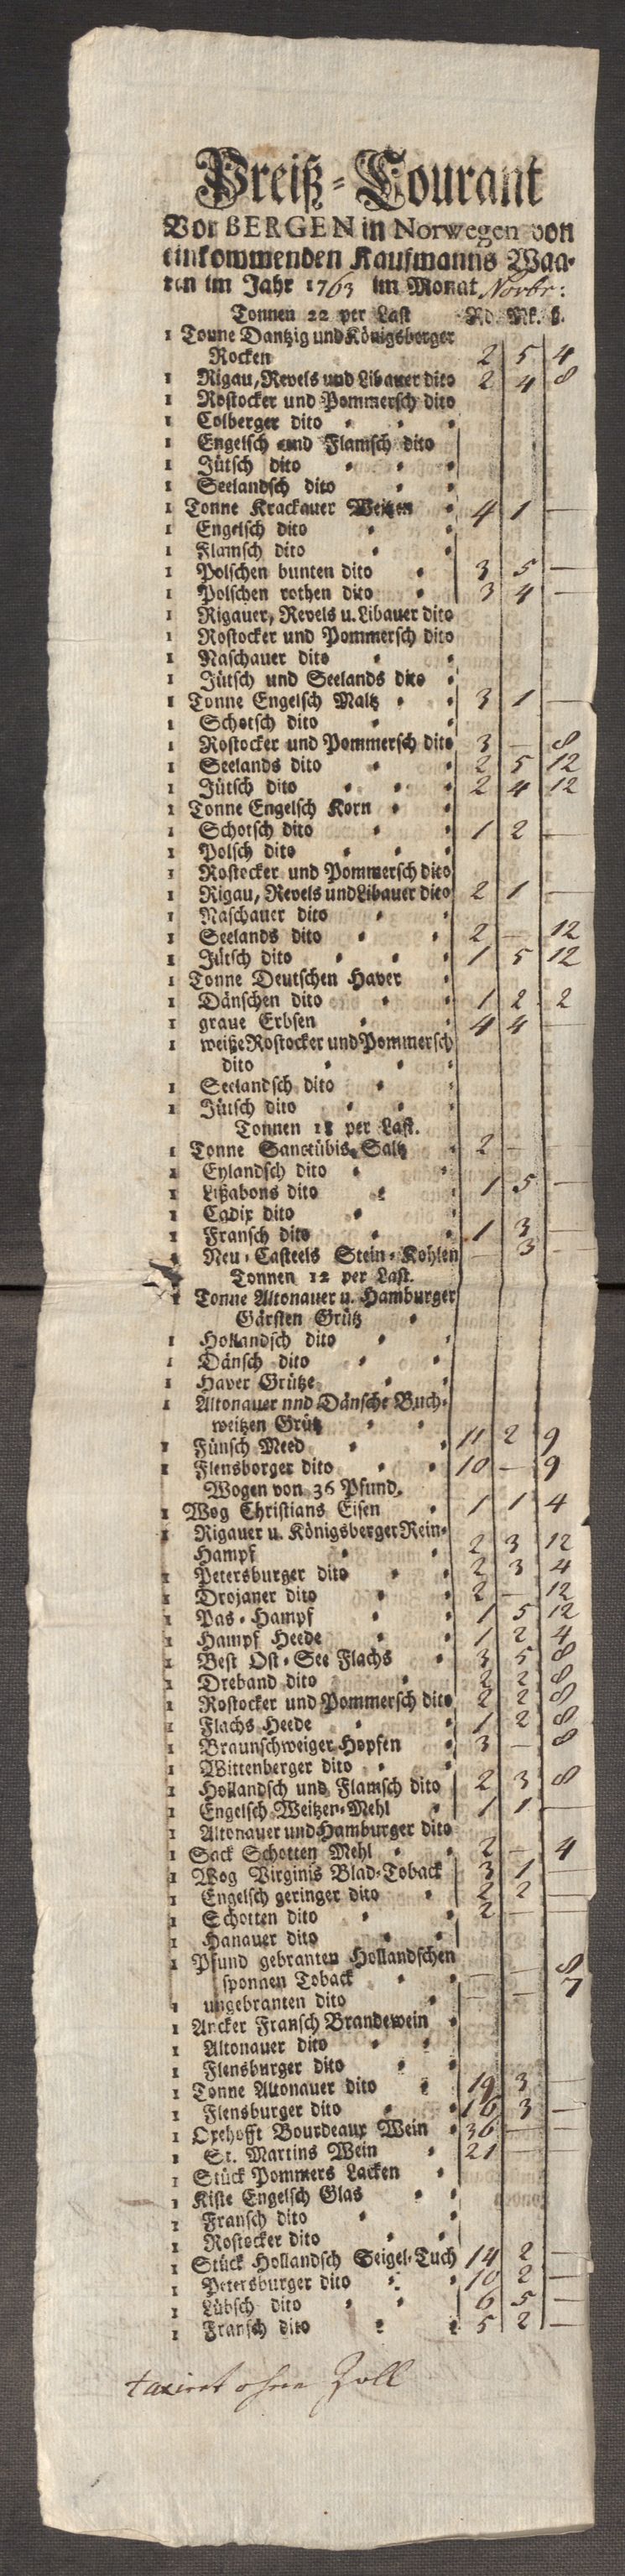 Preiß-Courant
Vor BERGEN in Norwegen von
einkommenden Kaufmanns Waa-
ren im Jahr 1763 im Monat Novbr:
Tonnen 22 per Last Rd. Mk. ß.
1 Tonne Dantzig und Königsberger
Rocken 2 5 4
1 Rigau, Revels und Libauer dito 2 4 8
1 Rostocker und Pommersch dito
1 Colberger dito
1 Engelsch und Flamsch dito
1 Jütsch dito
1 Seelandsch dito
1 Tonne Krackauer Weitzen 4 1 —
1 Engelsch dito
1 Flamsch dito
1 Polschen bunten dito 3 5 —
1 Polschen rothen dito 3 4 —
1 Rigauer, Revels u. Libauer dito
1 Rostocker und Pommersch dito
1 Naschauer dito
1 Jütsch und Seelands dito
1 Tonne Engelsch Maltz 3 1 —
1 Schotsch dito
1 Rostocker und Pommersch dito 3 — 8
1 Seelands dito 2 5 12
1 Jütsch dito 2 4 12
1 Tonne Engelsch Korn
1 Schotsch dito 1 2 —
1 Polsch dito
1 Rostocker und Pommersch dito
1 Rigau, Revels und Libauer dito 2 1 —
1 Naschauer dito
1 Seelands dito 2 — 12
1 Jütsch dito 1 5 12
1 Tonne Deutschen Haver
1 Dänschen dito 1 2 2
1 graue Erbsen 4 4 —
1 weiße Rostocker und Pommersch
dito
1 Seelandsch dito
1 Jütsch dito
Tonnen 18 per Last.
1 Tonne Sanctübis Saltz 2 — —
1 Eylandsch dito
1 Lißabons dito 1 5 —
1 Cadix dito
1 Fransch dito 1 3 —
1 Neu-Casteels Stein-Kohlen — 3 —
Tonnen 12 per Last.
1 Tonne Altonauer u. Hamburger
Gärsten Grütz
1 Hollandsch dito
1 Dänsch dito
1 Haver Grütze
1 Altonauer nnd Dänsche Buch-
weitzen Grütz
1 Fünsch Meed 11 2 9
1 Flensborger dito 10 — 9
Wogen von 36 Pfund.
1 Wog Christians Eisen 1 1 4
1 Rigauer u. Königsberger Rein-
Hampf 2 3 12
1 Petersburger dito 2 3 4
1 Drojaner dito 2 — 12
1 Pas-Hampf 1 5 12
1 Hampf Heede 1 2 4
1 Best Ost-See Flachs 3 5 8
1 Dreband dito 2 2 8
1 Rostocker und Pommersch dito 2 2 8
1 Flachs Heede 1 2 8
1 Braunschweiger Hopfen 3 — 8
1 Wittenberger dito
1 Hollandsch und Flamsch dito 2 3 8
1 Engelsch Weitzen-Mehl 1 1 —
1 Altonauer und Hamburger dito
1 Sack Schotten Mehl 2 — 4
1 Wog Virginis Blad-Toback 3 1 —
1 Engelsch geringer dito 2 2 —
1 Schotten dito 2 — —
1 Hanauer dito
1 Pfund gebranten Hollandschen
sponnen Toback — — 8
1 ungebranten dito — — 7
1 Ancker Fransch Brandewein
1 Altonauer dito
1 Flensburger dito
1 Tonne Altonauer dito 19 3 —
1 Flensburger dito 16 3 —
1 Oxehofft Bourdeaux Wein 36 — —
1 St. Martins Wein 21 — —
1 Stück Pommers Lacken
1 Kiste Engelsch Glas
1 Fransch dito
1 Rostocker dito
1 Stück Hollandsch Seigel-Tuch 14 2 —
1 Petersburger dito 10 2 —
1 Lübsch dito 6 5 —
1 Fransch dito 5 2 —
taxiret ohne Zoll